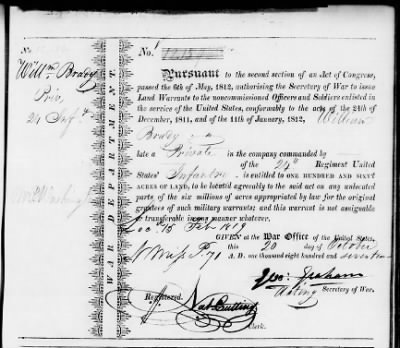 No.
Willm. Brady
Priv.
24 Inf.y
WAR DEPARTMENT
No.
Pursuant to the second section of an Act of Congress,
passed the 6th of May, 1812, authorising the Secretary of War to issue
Land Warrants to the noncommissioned Officers and Soldiers enlisted in
the service of the United States, conformably to the acts of the 24th of
December, 1811, and of the 11th of January, 1812, William
Brady a
late a Private in the company commanded by
of the 24th Regiment United
States' Infantry is entitled to ONE HUNDRED AND SIXTY
ACRES OF LAND, to be located agreeably to the said act on any unlocated
parts of the six millions of acres appropriated by law for the original
grantees of such military warrants; and this warrant is not assignable
or transferable in any manner whatever.
Loc. 15 Feb 1819
GIVEN at the War Office of the United States,
this 20 day of October
A. D. one thousand eight hundred and seventeen
Geo: Graham
Acting Secretary of War.
Registered.
Nat Cutting
Clerk.